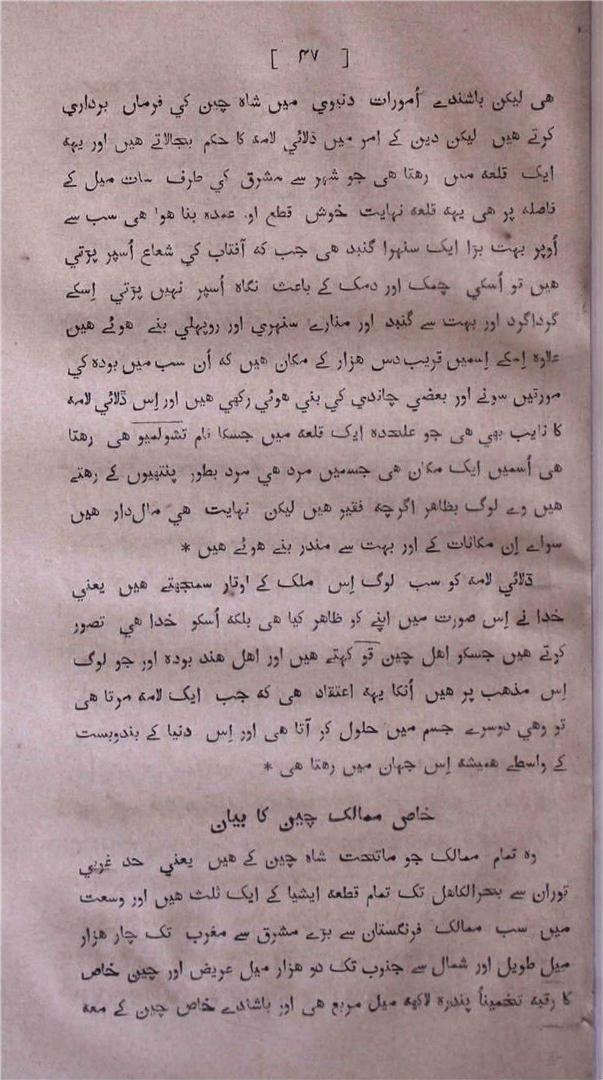 [ ۴۷ ]
هی لیکن باشندے اُمورات دنیوي میں شاہ چین کي فرماں برداري
کرتے هیں لیکن دین کے امر میں دَلائي لامه کا حکم بجالاتے هیں اور یهه
ایک قلعه میں رهتا هی جو شہر سے مشرق کي طرف سات میل کے
فاصله پر هی یهه قلعه نهایت خوش قطع او. عمده بنا هوا هی سب سے
اُوپر بہت بڑا ایک سنهرا گنبد هی جب که آفتاب کي شعاع اُسپر پڑتي
هیں تو اُسکي چمک اور دمک کے باعث نگاه اُسپر نهیں پڑتي اِسکے
گرداگرد اور بہت سے گنبد اور منارے سنهري اور روپهلي بنے هوئے هیں
علاوه اِسکے اِسمیں قریب دس هزار کے مکان هیں که اُن سب میں بوده کي
مورتیں سونے اور بعضي چاندي کي بني هوئي رکهي هیں اور اِس دَلائي لامه
کا نایب بهي هی جو علحده ایک قلعه میں جسکا نام تشولمبو هی رهتا
هی اُسمیں ایک مکان هی جسمیں مرد هي مرد بطور پنتهیوں کے رهتے
هیں وے لوگ بظاهر اگرچه فقیر هیں لیکن نهایت هي مال‌دار هیں
سواے اِن مکانات کے اور بہت سے مندر بنے هوئے هیں *
دَلائي لامه کو سب لوگ اِس ملک کے اوتار سمجهتے هیں یعني
خدا نے اِس صورت میں اپنے کو ظاهر کیا هی بلکه اُسکو خدا هي تصور
کرتے هیں جسکو اهل چین فو کہتے هیں اور اهل هند بوده اور جو لوگ
اِس مذهب پر هیں اُنکا یهه اعتقاد هی که جب ایک لامه مرتا هی
تو وهي دوسرے جسم میں حلول کر آتا هی اور اِس دنیا کے بندوبست
کے واسطے همیشه اِس جہان میں رهتا هی *
خاص ممالک چین کا بیان
وه تمام ممالک جو ماتحت شاه چین کے هیں یعني حد غربي
توران سے بحرالکاهل تک تمام قطعه ایشیا کے ایک ثلث هیں اور وسعت
میں سب ممالک فرنگستان سے بڑے مشرق سے مغرب تک چار هزار
میل طویل اور شمال سے جنوب تک دو هزار میل عریض اور چین خاص
کا رقبه تخمیناً پندره لاکهه میل مربع هی اور باشندے خاص چین کے معه